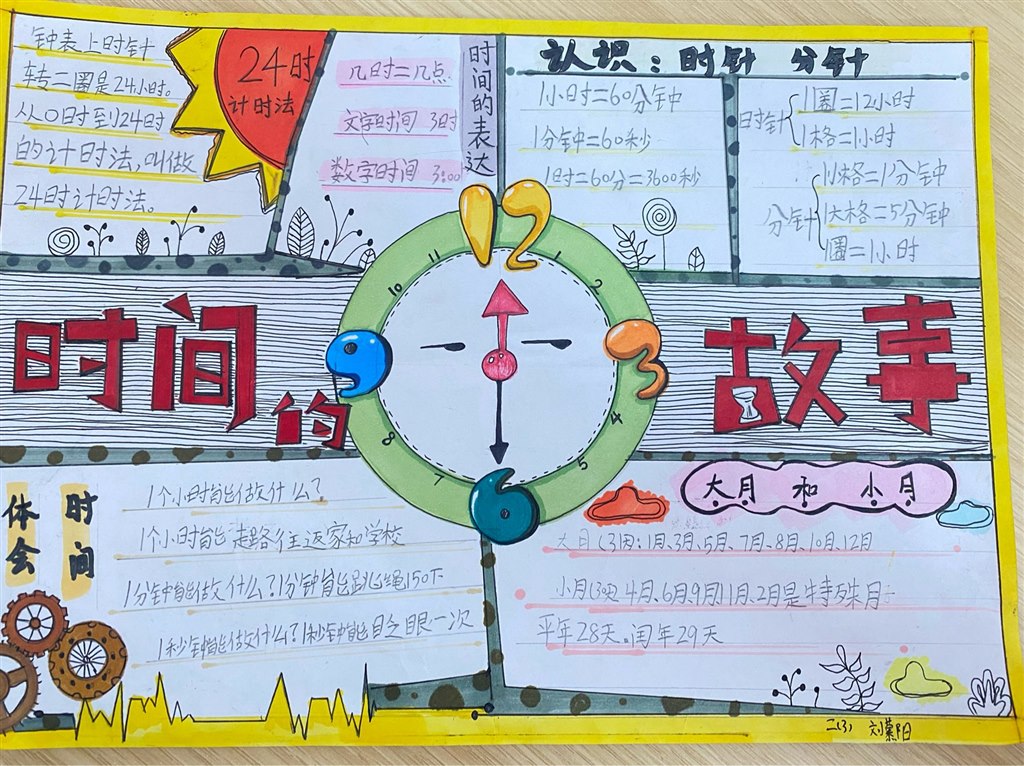 钟表上时针
转二圈是24小时。
从0时到24时
的计时法,叫做
24时计时法。
24时
计时法
几时=几点
文字时间 3时
数字时间 3:00
时间的表达
认识:时针 分针
1小时=60分钟
1分钟=60秒
1时=60分=3600秒
时针
1圈=12小时
1格=1小时
分针
1小格=1分钟
1大格=5分钟
1圈=1小时
时间的
故事
12
1
2
3
4
5
6
7
8
9
10
11
体会
时间
1个小时能做什么?
1个小时能走路往返家和学校
1分钟能做什么?1分钟能跳绳150下
1秒钟能做什么?1秒钟能眨眼一次
大月和小月
大月(31天):1月、3月、5月、7月、8月、10月、12月
小月(30天)、4月、6月9月11月、2月是特殊月
平年28天。闰年29天
二(3)